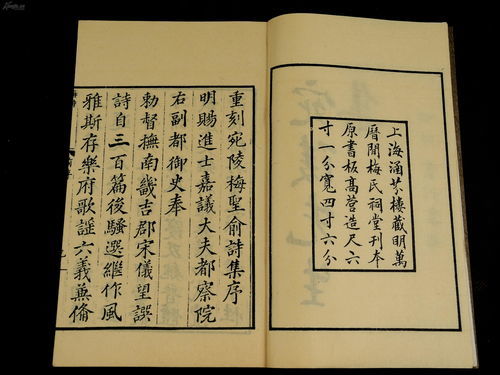 上海涵芬樓藏明萬
曆閒梅氏祠堂刊本
原書板高營造尺六
寸一分寬四寸六分
重刻宛陵梅聖俞詩集序
明賜進士嘉議大夫都察院
右副都御史奉
勑督撫南畿吉郡宋儀望譔
詩自三百篇後騷選繼作風
雅斯存樂府歌謡六義兼偹